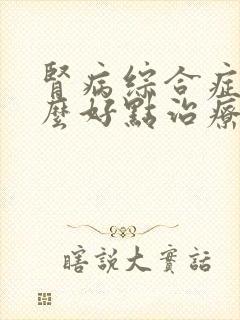 腎病綜合症
麼好點治療
瞎說大實話